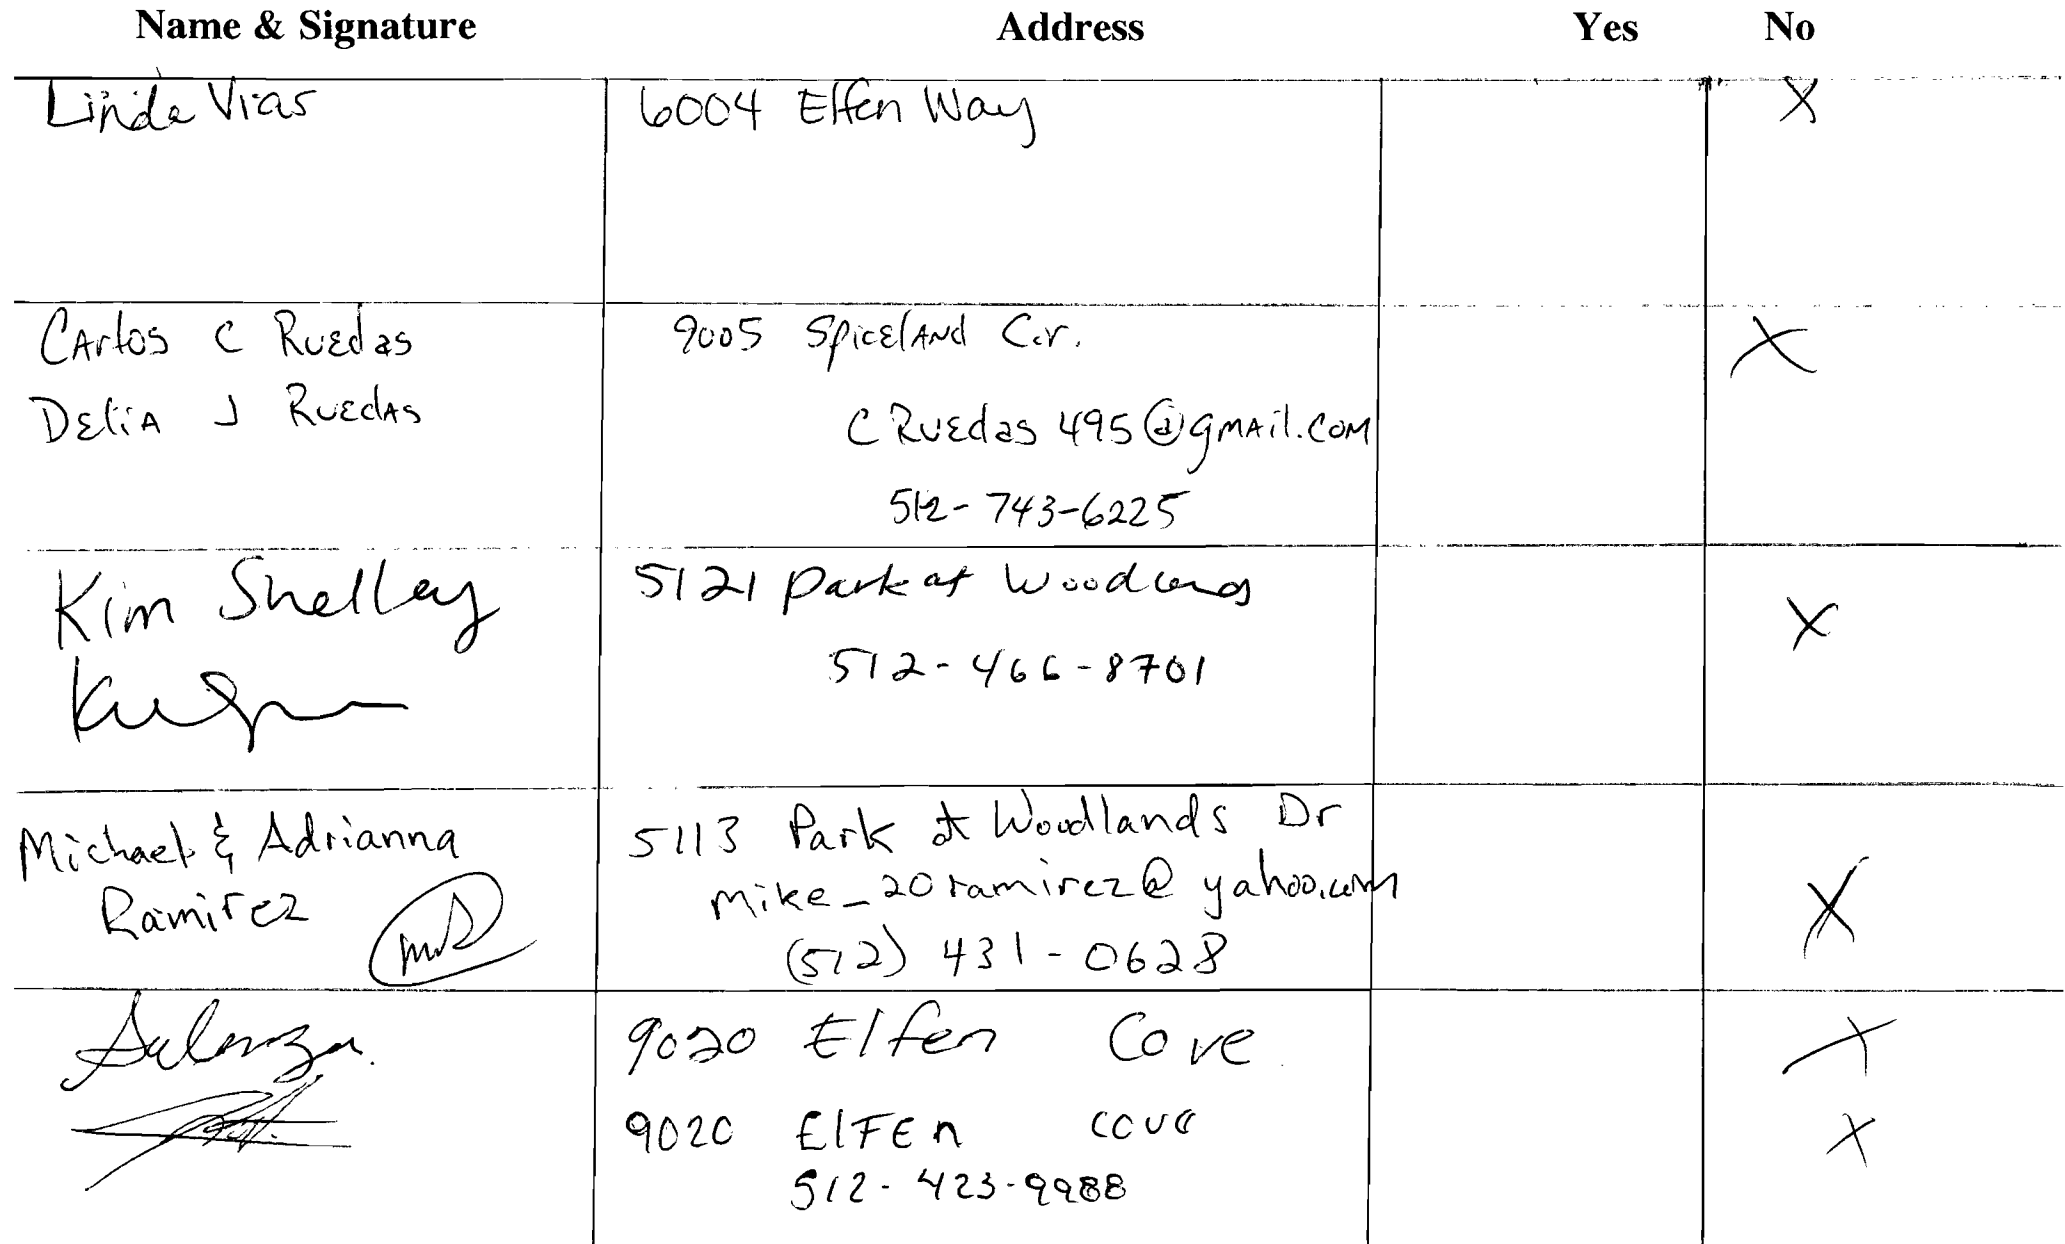 Name & Signature Address Yes No
Linda Vias 6004 Elfen Way X
Carlos C Ruedas 9005 Spiceland Cir. X
Delia J Ruedas CRuedas495@gmail.com
512-743-6225
Kim Shelley 5121 Park at Woodlands X
512-466-8701
Michael & Adrianna 5113 Park at Woodlands Dr
Ramirez mike_20ramirez@yahoo.com X
(512) 431-0628
9020 Elfen Cove X
9020 ElFEn cove X
512-423-9988